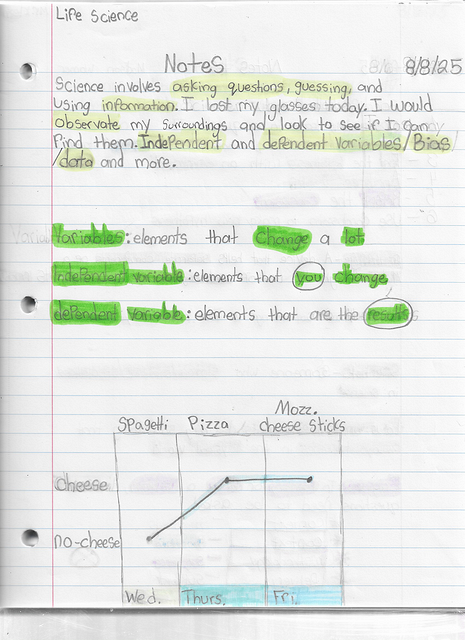 Life Science
Notes 8/8/25
Science involves asking questions, guessing, and
using information. I lost my glasses today. I would
observate my surroundings and look to see if I can
find them. Independent and dependent variables/Bias
/data and more.
Variables: elements that change a lot
Independent variable: elements that you change
dependent variable: elements that are the results
Mozz.
Spagetti Pizza cheese sticks
cheese
no-cheese
Wed. Thurs. Fri.